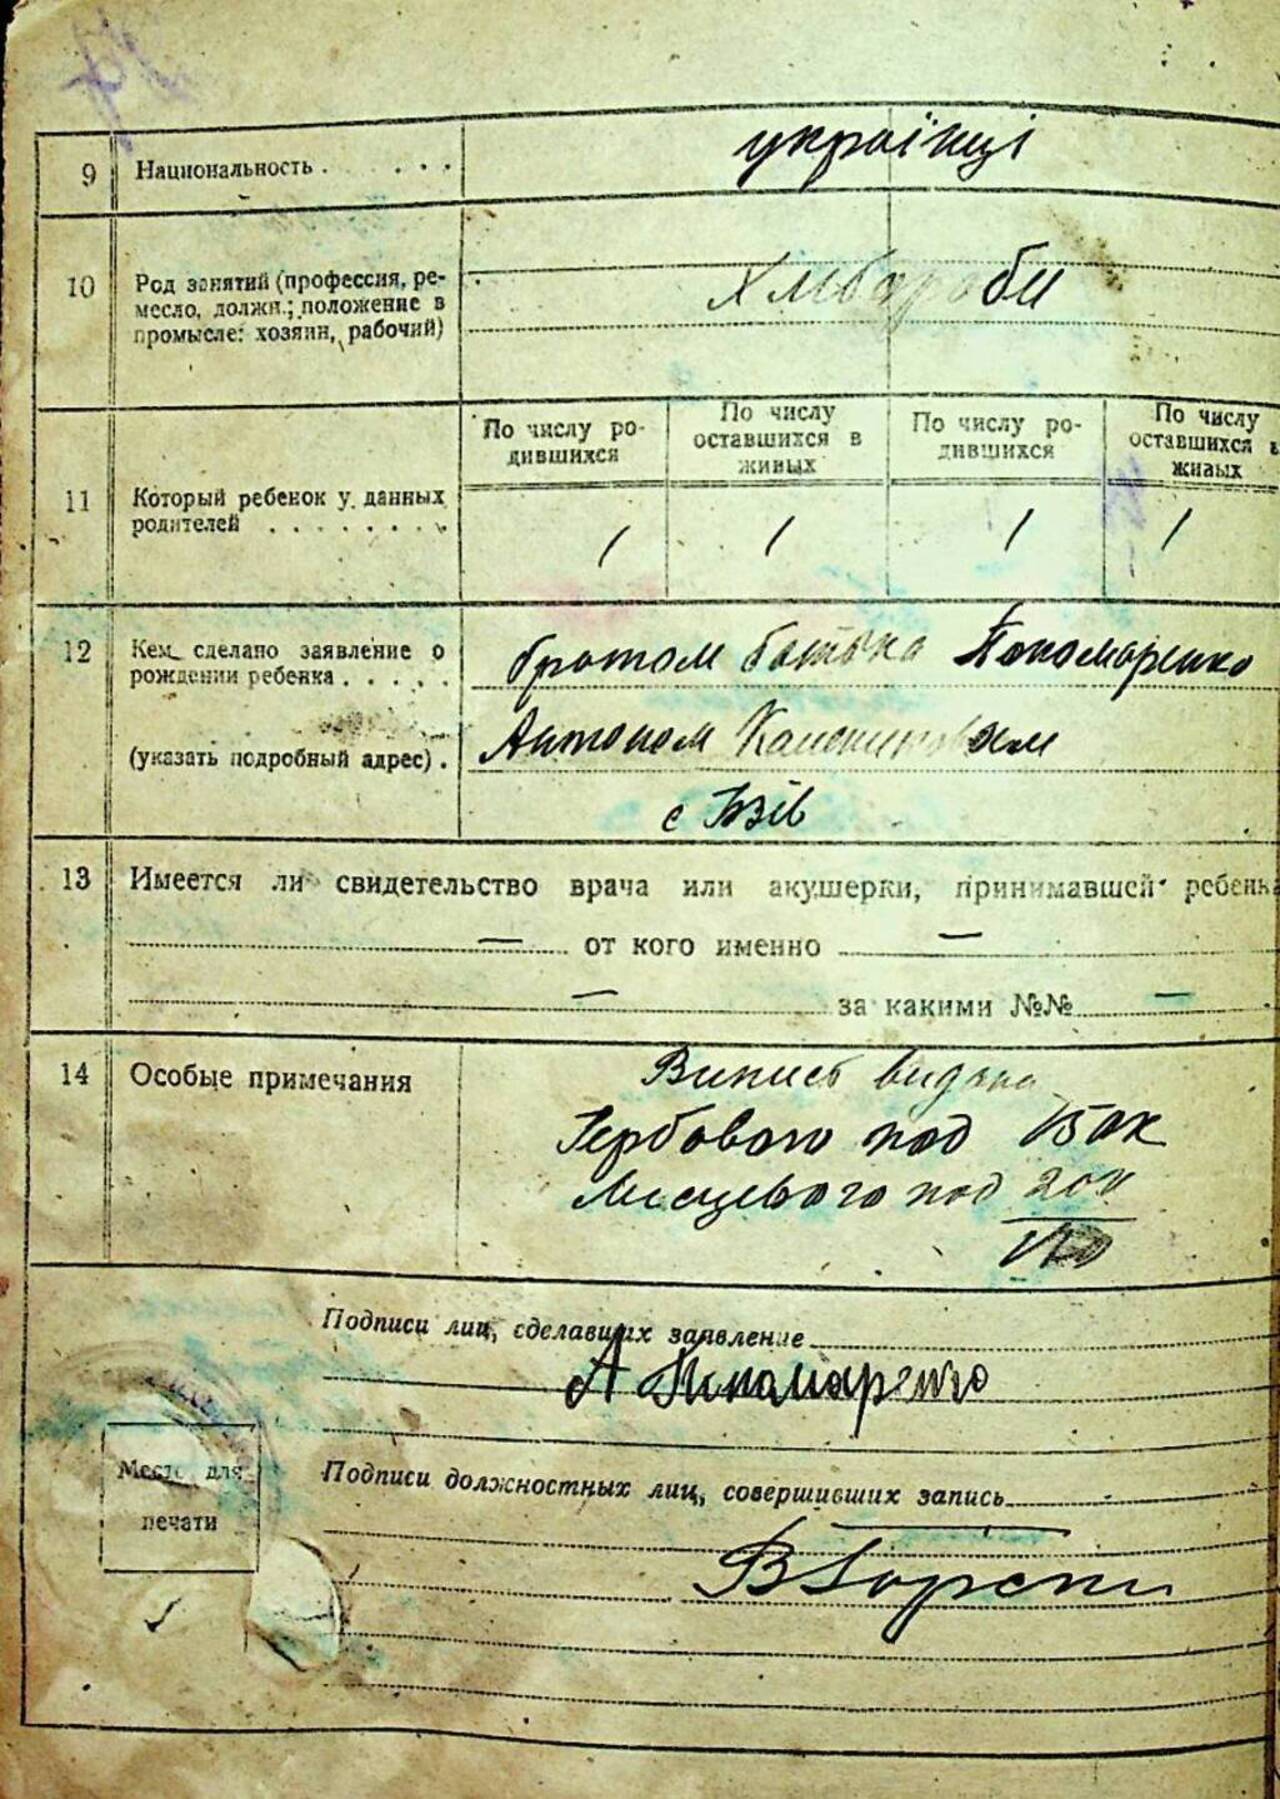 9 Национальность . . . . .
українці
10 Род занятий (профессия, ре-
месло, должн.; положение в
промысле: хозяин, рабочий)
Хлібороби
11 Который ребенок у данных
родителей . . . . . . . .
По числу ро-
дившихся
По числу
оставшихся в
живых
По числу ро-
дившихся
По числу
оставшихся в
живых
1 1 1 1
12 Кем сделано заявление о
рождении ребенка . . . . .
(указать подробный адрес) .
братом батька Пономаренко
Антоном
с
13 Имеется ли свидетельство врача или акушерки, принимавшей ребенк
— от кого именно —
— за какими №№ —
14 Особые примечания
Випись видана
Гербового под 150к
Місцевого под 20к
Подписи лиц, сделавших заявление
А Пономаренко
Место для
печати
Подписи должностных лиц, совершивших запись